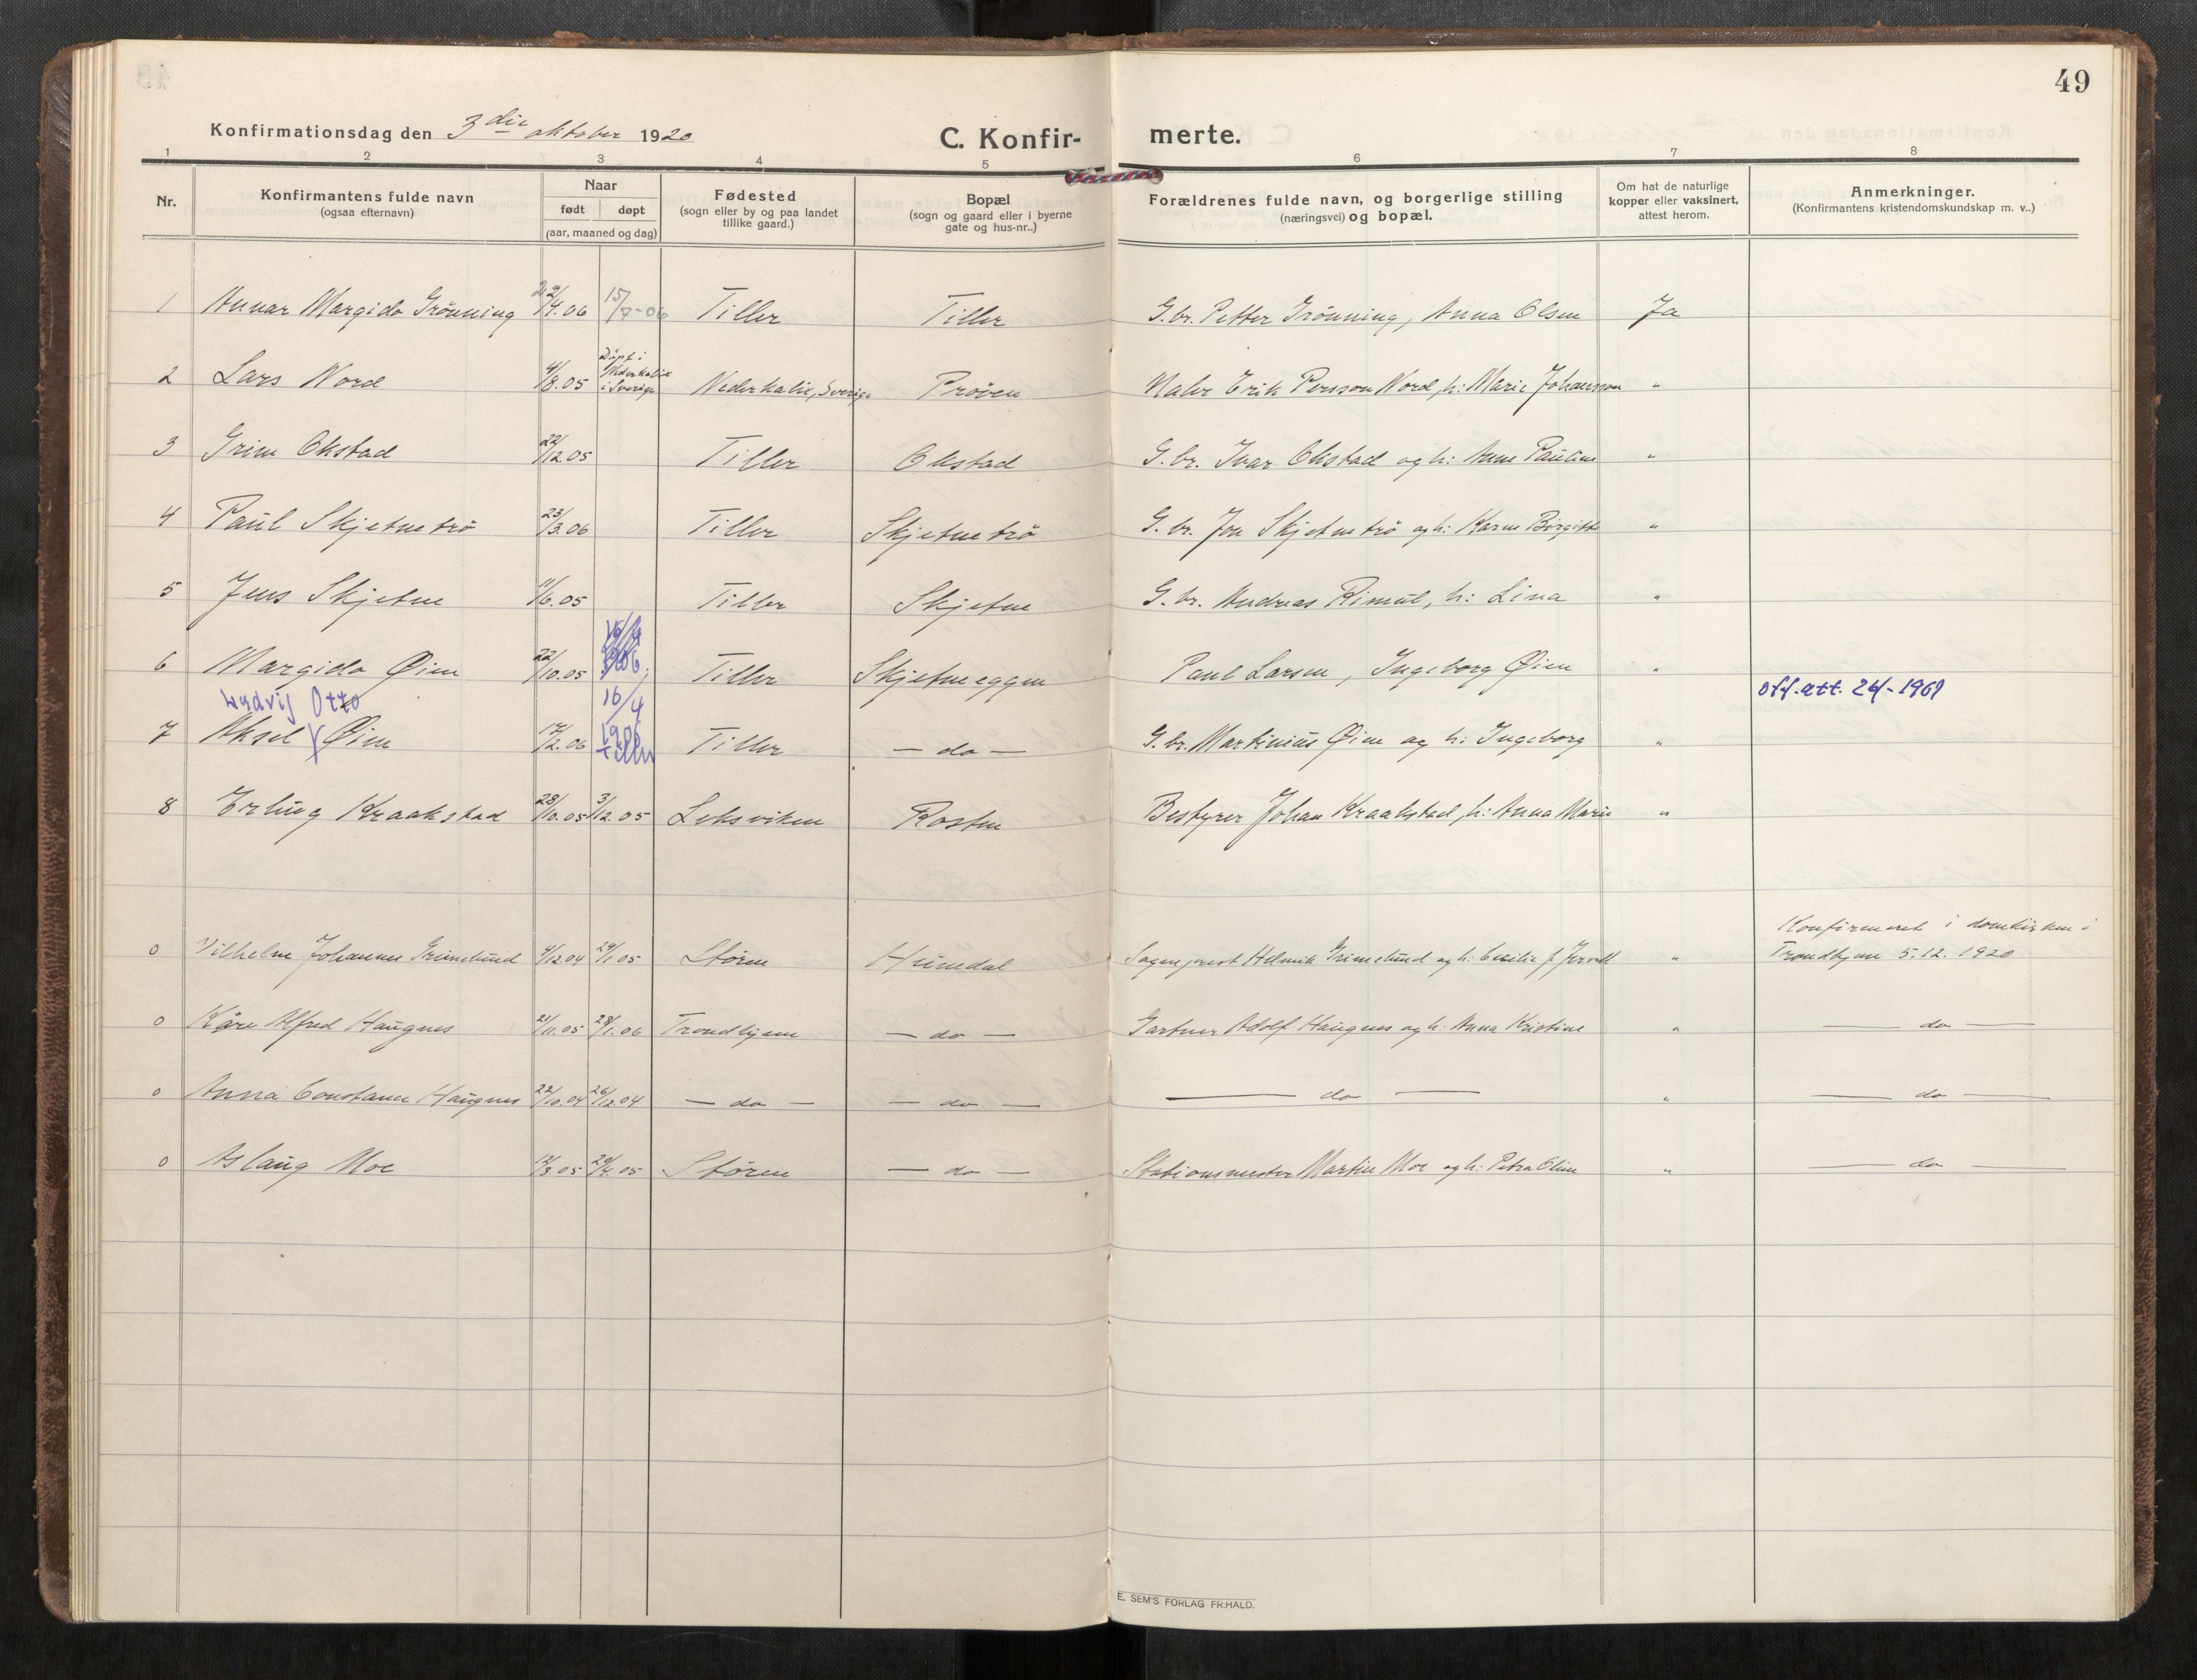 49
Konfirmationsdag den 3die oktober 1920
C. Konfir- merte.
1 2 3 4 5 6 7 8
Nr.
Konfirmantens fulde navn
(ogsaa efternavn)
Naar
født døpt
(aar, maaned og dag)
Fødested
(sogn eller by og paa landet
tillike gaard.)
Bopæl
(sogn og gaard eller i byerne
gate og hus-nr..)
Forældrenes fulde navn, og borgerlige stilling
(næringsvei) og bopæl.
Om hat de naturlige
kopper eller vaksinert,
attest herom.
Anmerkninger.
(Konfirmantens kristendomskundskap m. v..)
1 Annar Margido Grönning 29/4.06 15/7-06 Tiller Tiller G.br. Petter Grönning, Anna Olsen Ja
Döpt i
Nederkalix
i Sverige
2 Lars Nord 4/8.05 Nederkalix, Sverige Pröven Maler Erik Persson Nord, h: Marie Johansson "
3 Grim Okstad 22/12.05 Tiller Okstad G. br. Ivar Okstad og h: Anne Pauline "
4 Paul Skjetnetrö 23/3.06 Tiller Skjetnetrö G. br. Jon Skjetnetrö og h: Karen Birgitte "
5 Jens Skjetne 11/6.05 Tiller Skjetne G. br. Andreas Rimul, h: Lina "
6 Margido Øien 22/10.05 Tiller Skjetneeggen Paul Larsen, Ingeborg Øien "
Ludvig Otto
16/4
1906
Tiller
off. att. 24-1961
7 Aksel Øien 17/2.06 Tiller — do — G. br. Martinius Øien og h: Ingeborg "
8 Erling Kraakstad 28/10.05 3/12.05 Leksviken Rosten Bestyrer Johan Kraakstad, h: Anna Marie "
0 Vilhelm Johannes Grimelund 4/12.04 29/1.05 Støren Heimdal Sogneprest Helmik Grimelund og h: Cecilie f. "
Konfirmeret i domkirken i
Trondhjem 5.12. 1920
0 Kåre Alfred Haugnes 21/11.05 28/1.06 Trondhjem — do — Gartner Adolf Haugnes og h: Anna Kristine " — do —
0 Anna Constance Haugnes 22/10.04 26/12.04 — do — — do — — do — " — do —
0 Aslaug Moe 12/3.05 20/4.05 Støren — do — Stationsmester Martin Moe og h: Petra Oline " — do —
E. SEM'S FORLAG FR.HALD.